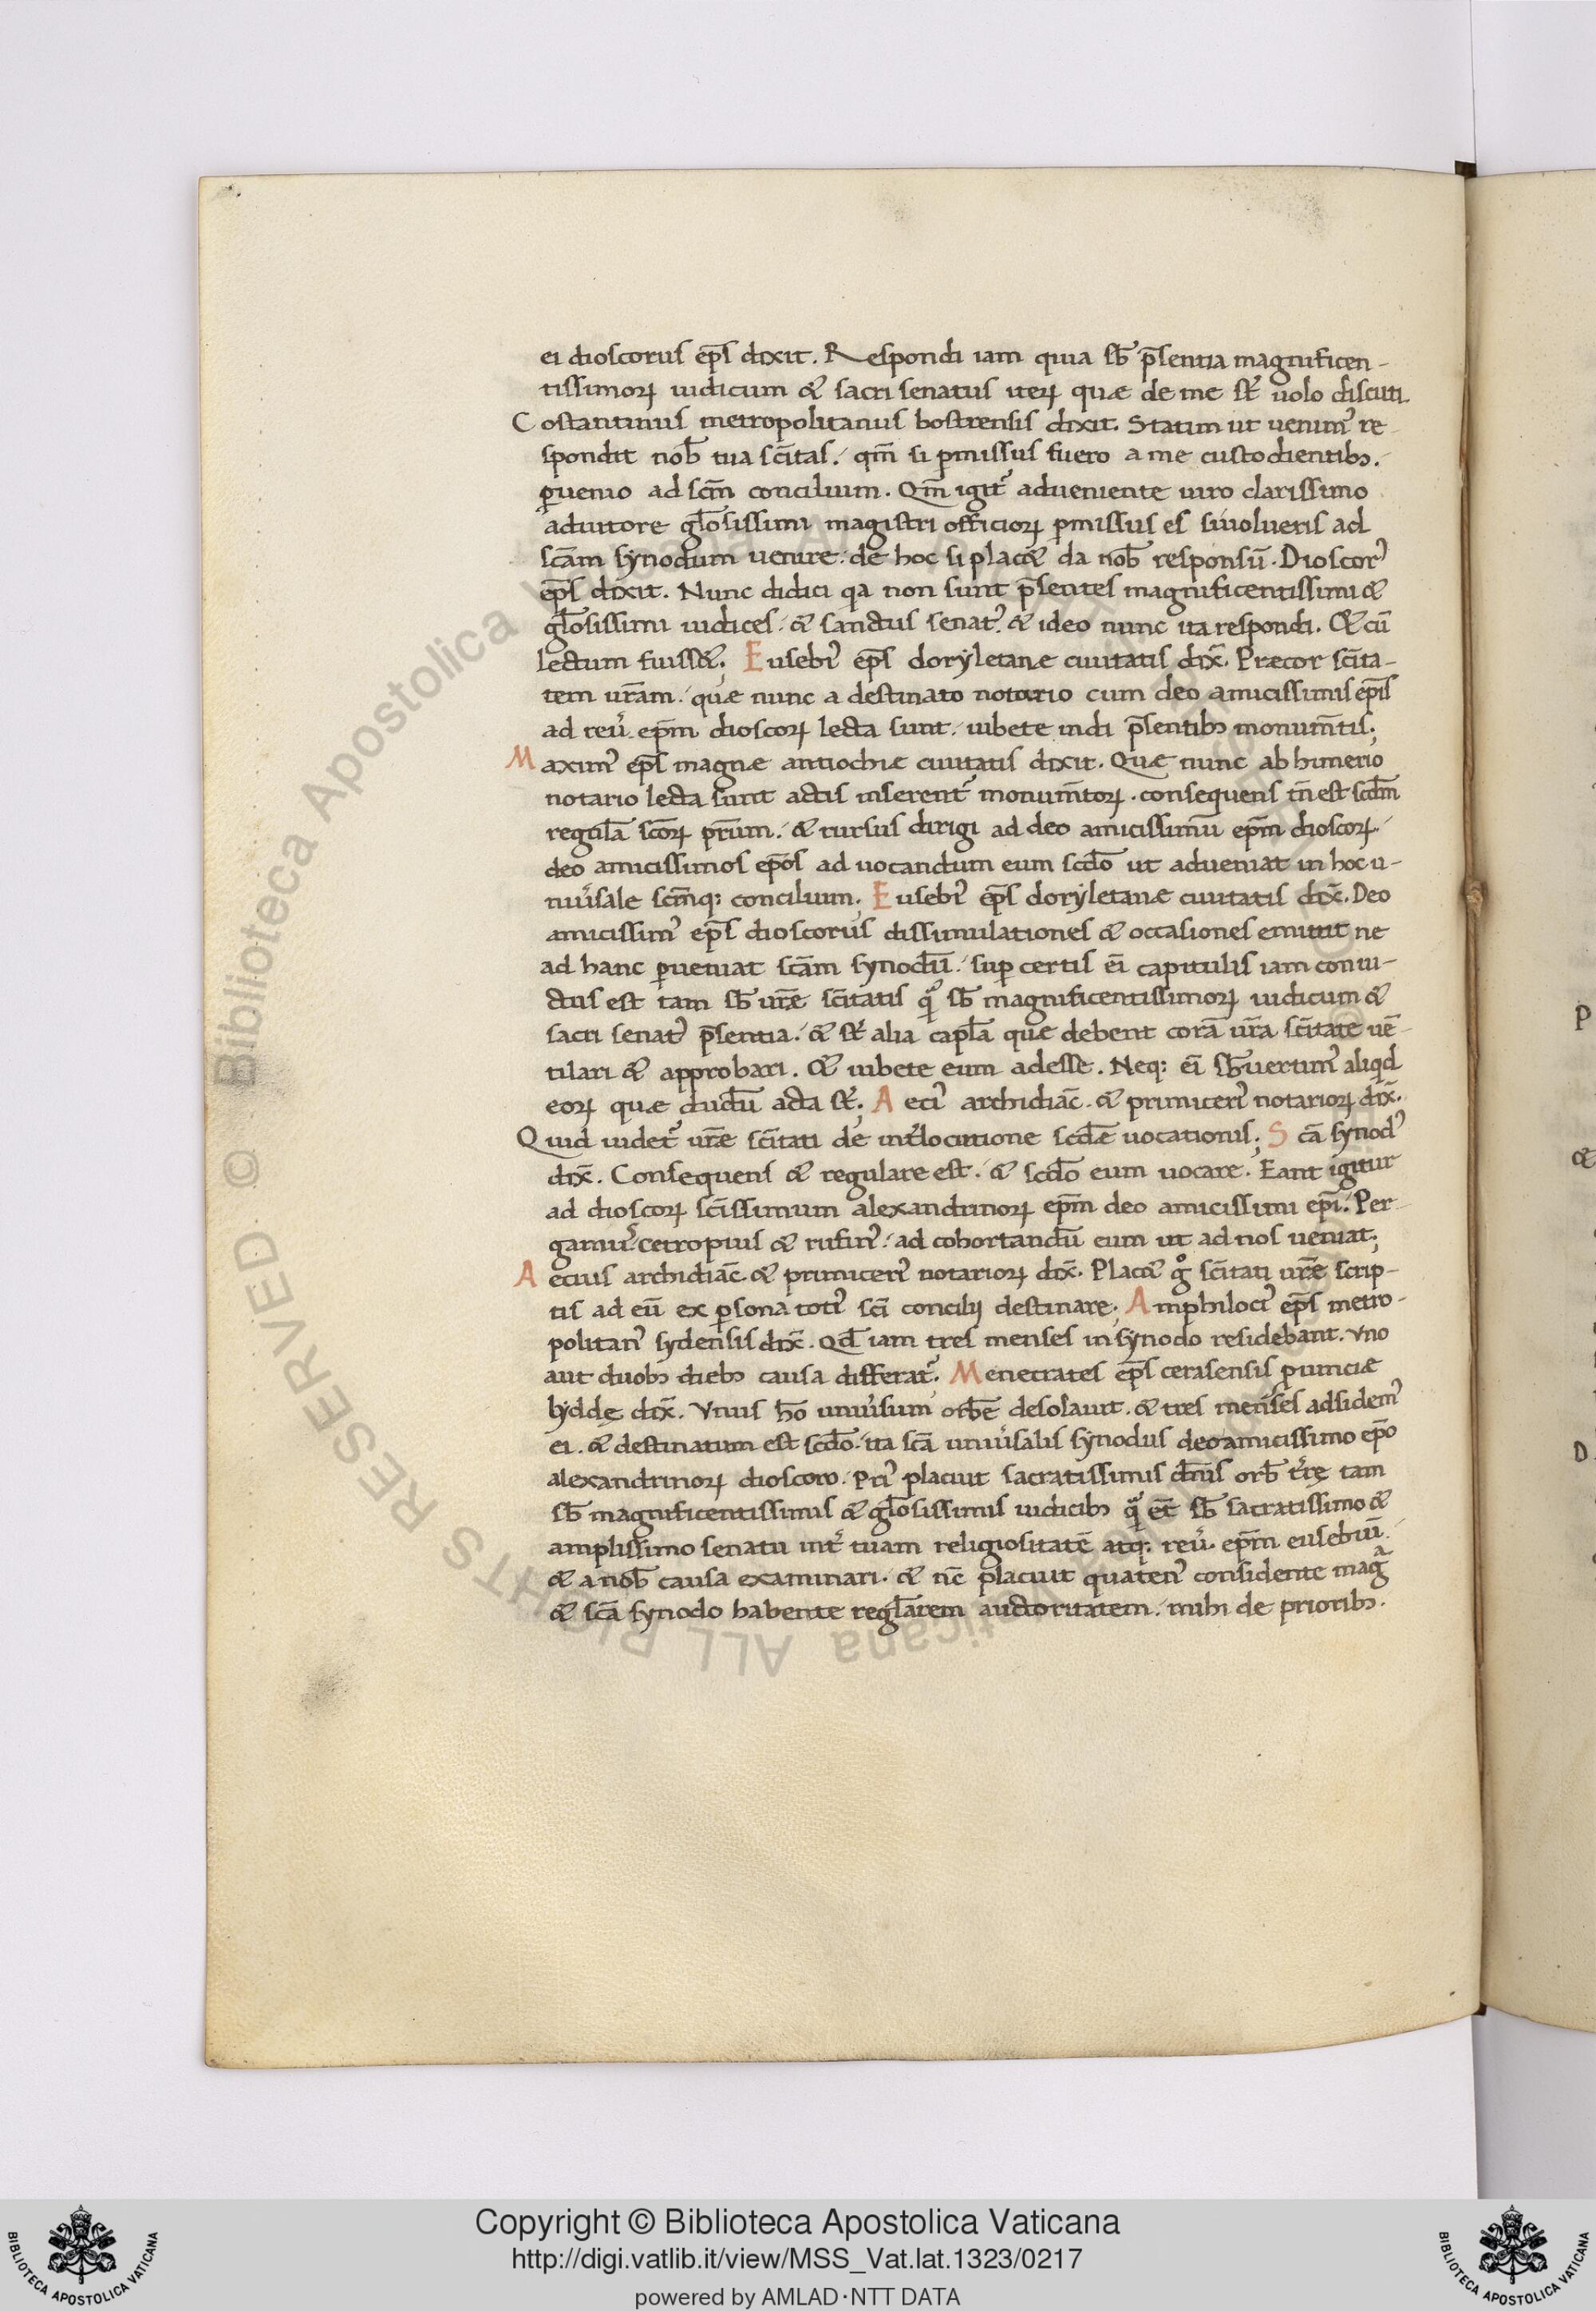 ei dioscorus ep̄s dixit. Respondi iam quia sb̄ p̄sentia magnificen-
tissimoꝝ iudicum & sacri senatus iteꝝ quæ de me st̄ uolo discuti.
Costantinus metropolitanus bostrensis dixit. Statim ut uenim᾽ re
spondit nob̄ tua sc̄itas. qm̄ si pmissus fuero a me custodientibꝫ.
ꝑuenio ad sc̄m concilium. Qm̄ igit᾽ adueniente uiro clarissimo
adiutore gl̄osissimi magistri officioꝝ pmissus es si uolueris ad
sc̄am synodum uenire. de hoc si plac& da nob̄ responsū. Dioscor᾽
ep̄s dixit. Nunc didici qa non sunt p̄sentes magnificentissimi &
gl̄osissimi iudices. & sanctus senat᾽. & ideo nunc ita respondi. & cū
lectum fuiss&; Eusebi᾽ ep̄s doryletanæ ciuitatis dix̄. Præcor sc̄ita-
tem ur̄am. quæ nunc a destinato notario cum deo amicissimis ep̄is
ad reu᾽. ep̄m dioscoꝝ lecta sunt. iubete indi p̄sentibꝫ monum̄tis;
Maxim᾽ ep̄s magnæ antiochiæ ciuitatis dixit. Quæ nunc ab himerio
notario lecta sunt actis inserent᾽ monum̄toꝝ. consequens tn̄ est scd̄m
regulā sc̄oꝝ pr̄um. & rursus dirigi ad deo amicissimū ep̄m dioscoꝝ.
deo amicissimos ep̄os ad uocandum eum scd̄o ut adueniat in hoc u-
niu᾽sale sc̄mq: concilium; Eusebi᾽ ep̄s doryletanæ ciuitatis dix̄. Deo
amicissim᾽ ep̄s dioscorus dissimulationes & occasiones emittit ne
ad hanc ꝑueniat sc̄am synodū. suꝑ certis ei᾽ capitulis iam conui-
ctus est tam sb̄ ur̄æ sc̄itatis q̄ sb̄ magnificentissimoꝝ iudicum &
sacri senat᾽ p̄sentia. & st̄ alia capl̄a quæ debent corā ur̄a sc̄itate uē-
tilari & approbari. & iubete eum adesse. Neq: ei᾽ sb̄uertim᾽ aliqd
eoꝝ quæ dudū acta st̄; Aeci᾽ archidiāc. & primiceri᾽ notarioꝝ dix̄.
Quid uidet᾽ ur̄æ sc̄itati de int᾽locutione scd̄æ uocationis; Scā synod᾽
dix̄. Consequens & regulare est. & scd̄o eum uocare. Eant igitur
ad dioscoꝝ sc̄issimum alexandrinoꝝ ep̄m deo amicissimi ep̄i. Per
gamus᾽. cetropius & rufin᾽. ad cohortandū eum ut ad nos ueniat;
Aecius archidiāc & primiceri᾽ notarioꝝ dix̄. Plac& g° sc̄itati ur̄æ scrip-
tis ad eū ex ꝑsona toti᾽ sc̄i concilij destinare; Amphiloci᾽ ep̄s metro-
politan᾽ sydensis dix̄. Qd̄ iam tres menses in synodo residebant. uno
aut duobꝫ diebꝫ causa differat᾽. Menecrates ep̄s cerasensis puinciæ
lydde dix̄. Vnus ho᾽ uniu᾽sum orbē desolauit. & tres menses adsidem᾽
ei. & destinatum est scd̄o. ita sc̄a uniu᾽salis synodus deo amicissimo ep̄o
alexandrinoꝝ dioscoro. Pri᾽ placuit sacratissimis dn̄is orb̄ t᾽rę tam
sb̄ magnificentissimis & gl̄osissimis iudicibꝫ q̄ et̄ sb̄ sacratissimo &
amplissimo senatu int᾽ tuam religiositatē atq: reu᾽. ep̄m eusebiū.
& a nob̄ causa examinari. & nc̄ placuit quaten᾽ considente mag̅
& sc̄a synodo habente regl̄arem auctoritatem. mihi de prioribꝫ.
Copyright © Biblioteca Apostolica Vaticana
http://digi.vatlib.it/view/MSS_Vat.lat.1323/0217
powered by AMLAD·NTT DATA